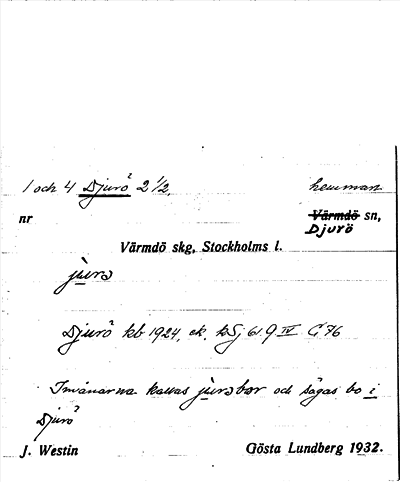 1 och 4 Djurö 2 1/2. hemman
nr Värmdö sn,
Djurö
Värmdö skg, Stockholms l.
jurə
Djurö kb 1924, ek. kSj 61. 9 IV C 76
Invånarna kallas jurəbor och sägas bo i
Djurö
J. Westin Gösta Lundberg 1932.